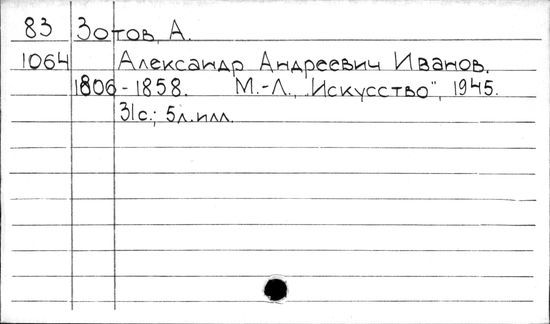 83 Зотов, А.
1064 Александр Андреевич Иванов.
1806-1858. М.-Л., „Искусство", 1945.
31с.; 5л.илл.